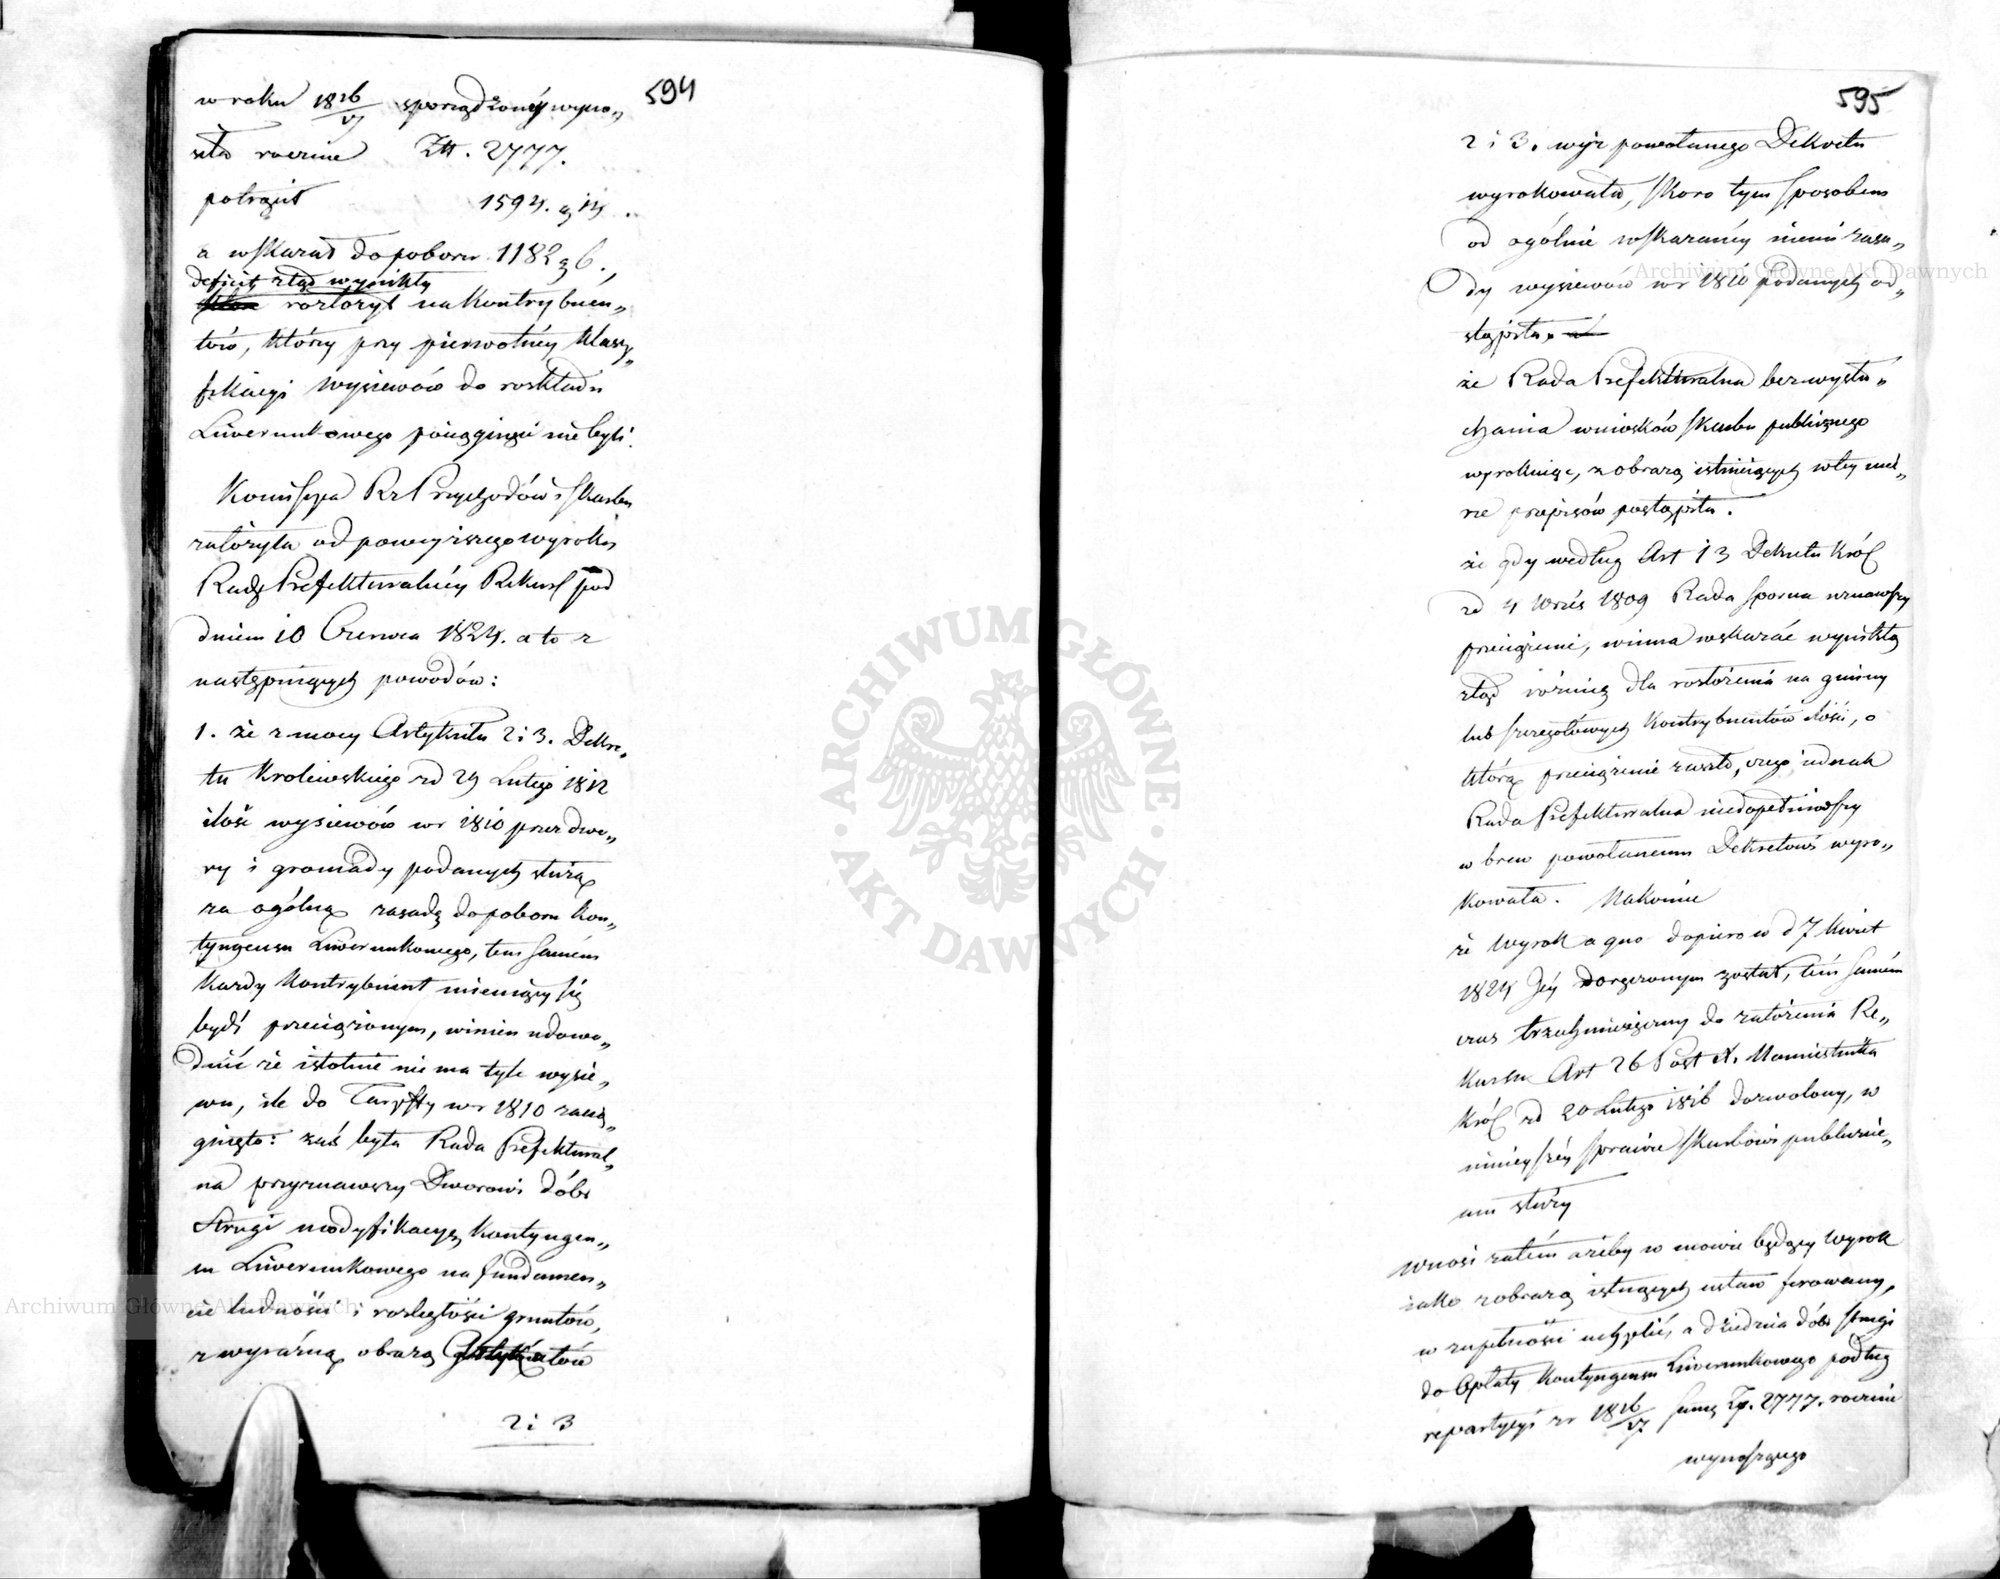 594
w roku 1816/17 sporządzonéy wyno„
siła rocznie Złł. 2777.
potrącił 1594. g 24.
a wskazał do poboru 1182 g 6.,
deficit ztąd wynikły
rozłożył na kontrybuen„
tów, którzy przy pierwotnéy klassy„
fikacyi wysiewów do rozkładu
Liwerunkowego pociągnięci nie byli.
Kommissya Rz Przychodów i Skarbu
założyła od powyższego wyroku
Rady Prefekturalnéy Rekurs pod
dniem 10 Czerwca 1824. a to z
następuiących powodów:
1. że z mocy Artykułu 2 i 3. Dekre„
tu Krolewskiego zd 29 Lutego 1812
ilość wysiewów w r 1810 przez dwo„
ry i gromady podanych służą
za ogólną zasadę do poboru kon„
tyngensu Liwerunkowego, tem samém
każdy kontrybuent mieniący się
bydź przeciążonym, winien udowo„
dnić że istotnie nie ma tyle wysie„
wu, ile do Taryffy w r 1810 zacią„
gnięto: zaś była Rada Prefektural„
na przyznawszy Dworowi dóbr
Strugi modyfikacyę kontyngen„
su Liwerunkowego na fundamen„
cie ludności i rozległości gruntów,
z wyraźną obrazą Artykułów
2 i 3
595
2 i 3. wyż powołanego Dekretu
wyrokowała, skoro tym sposobem
od ogólnie wskazanéy niemi zasa„
dy wysiewów w r 1810 podanych od„
stąpiła.
że Rada Prefekturalna bez wysłu„
chania wniosków skarbu publicznego
wyrokuiąc, z obrazą istnieiących w téy mie„
rze przepisów postąpiła.
że gdy według Art 13 Dekretu Król
zd 4 Wrześ 1809 Rada sporna uznawszy
przeciążenie, winna wskazać wynikłą
ztąd różnicę dla rozłożenia na gminy
lub szczegółowych kontrybuentów ilości, o
którą przeciążenie zaszło, czego iednak
Rada Prefekturalna niedopełniwszy
wbrew powołanemu Dekretowi wyro„
kowała. Nakoniec
że Wyrok a quo dopiero w d 7 Kwiet
1824 Jéy doręczonym został, tém samém
czas trzechmiesięczny do założenia Re„
kursu Art 26 Post X. Namiestnika
Król zd 20 Lutego 1816 dozwolony, w
ninieyszéy sprawie Skarbowi publicznie„
mu służy
Wnosi zatém ażeby w mowie będący Wyrok
iako z obrazą istnących ustaw ferowany,
w zupełności uchylić, a dziedzica dóbr Strugi
do Opłaty kontyngensu Liwerunkowego podług
repartycyi z r 1816/17 summę Zp. 2777. rocznie
wynoszącego
ARCHIWUM GŁÓWNE AKT DAWNYCH
Archiwum Główne Akt Dawnych
Archiwum Główne Akt Dawnych